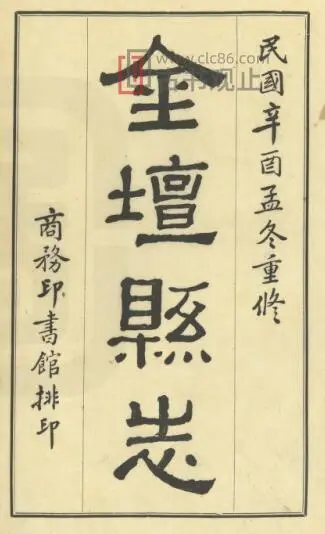 民國辛酉孟冬重修
金壇縣志
商務印書館排印
www.clc86.com